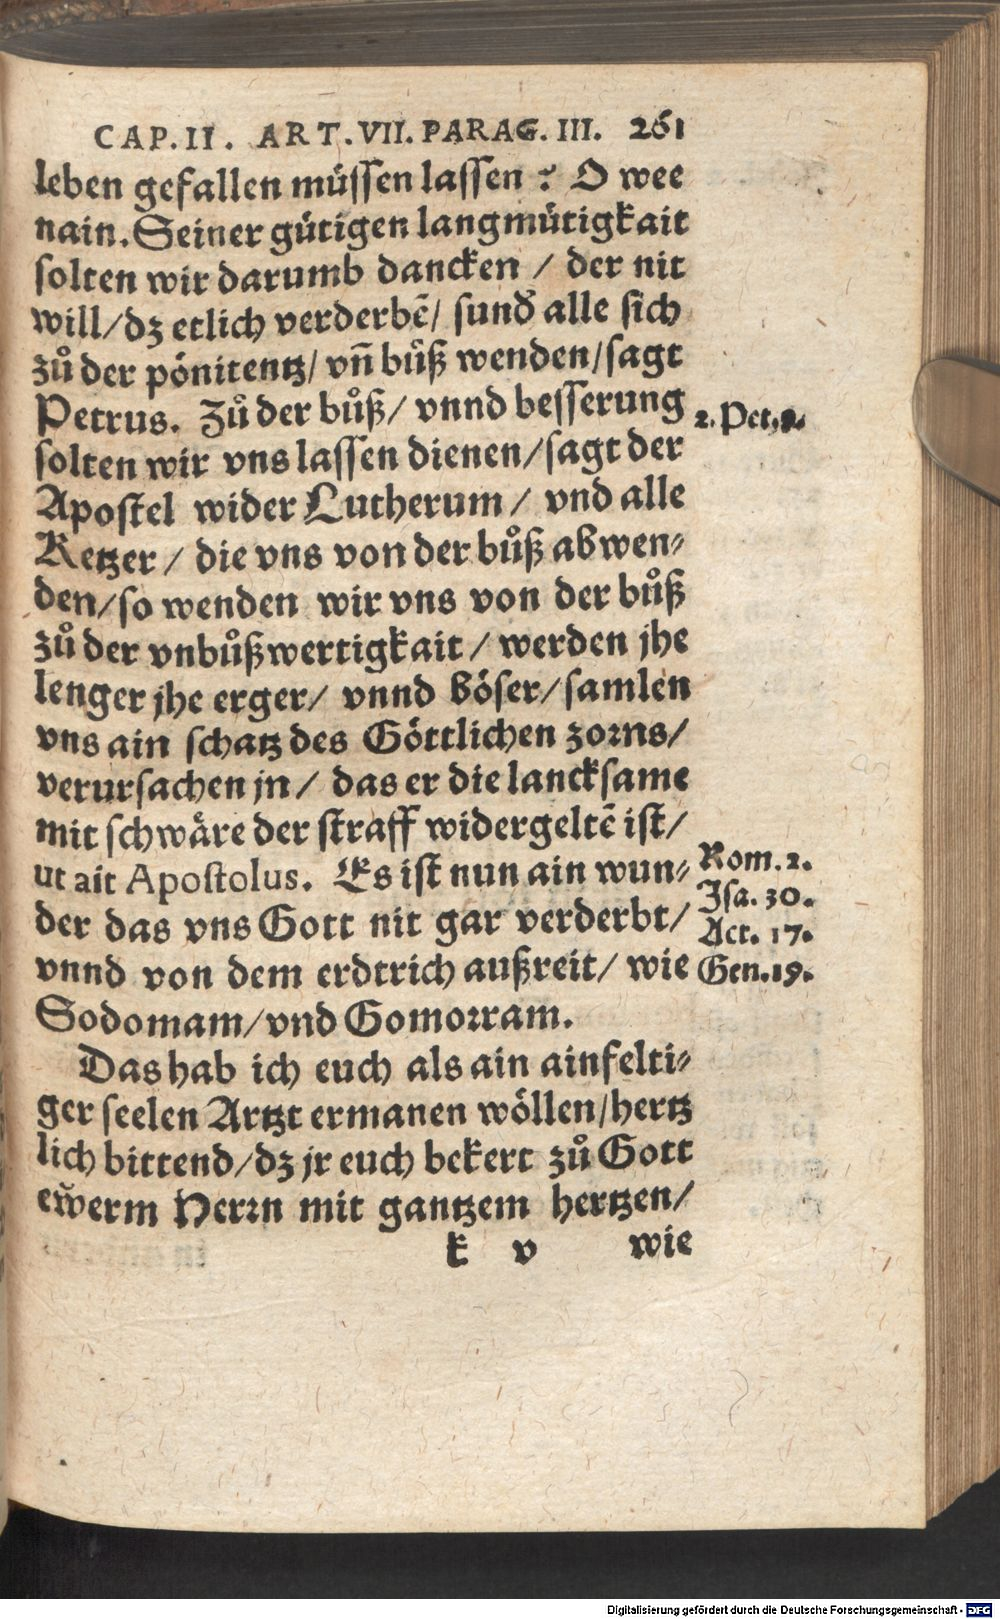 CAP. II. ART. VII. PARAG. III. 261
leben gefallen müssen lassen? O wee
nain. Seiner gütigen langmütigkait
solten wir darumb dancken / der nit
will/dz etlich verderbẽ/ sund̃ alle sich
zů der pönitentz/ vñ bůß wenden/sagt
Petrus. Zů der bůß/ vnnd besserung
2. Pet.
solten wir vns lassen dienen/sagt der
Apostel wider Lutherum / vnd alle
Ketzer / die vns von der bůß abwen⸗
den/so wenden wir vns von der bůß
zů der vnbůßwertigkait / werden jhe
lenger jhe erger/ vnnd böser/samlen
vns ain schatz des Göttlichen zorns/
verursachen jn / das er die lancksame
mit schwäre der straff widergeltẽ ist/
ut ait Apostolus. Es ist nun ain wun⸗
Rom. 2.
Isa. 30.
der das vns Gott nit gar verderbt/
Act. 17.
vnnd von dem erdtrich außreit/ wie
Gen. 19.
Sodomam/vnd Gomorram.
Das hab ich euch als ain ainfelti⸗
ger seelen Artzt ermanen wöllen/hertz
lich bittend/dz jr euch bekert zů Gott
ew̃erm Herrn mit gantzem hertzen/
k v wie
Digitalisierung gefördert durch die Deutsche Forschungsgemeinschaft - DFG